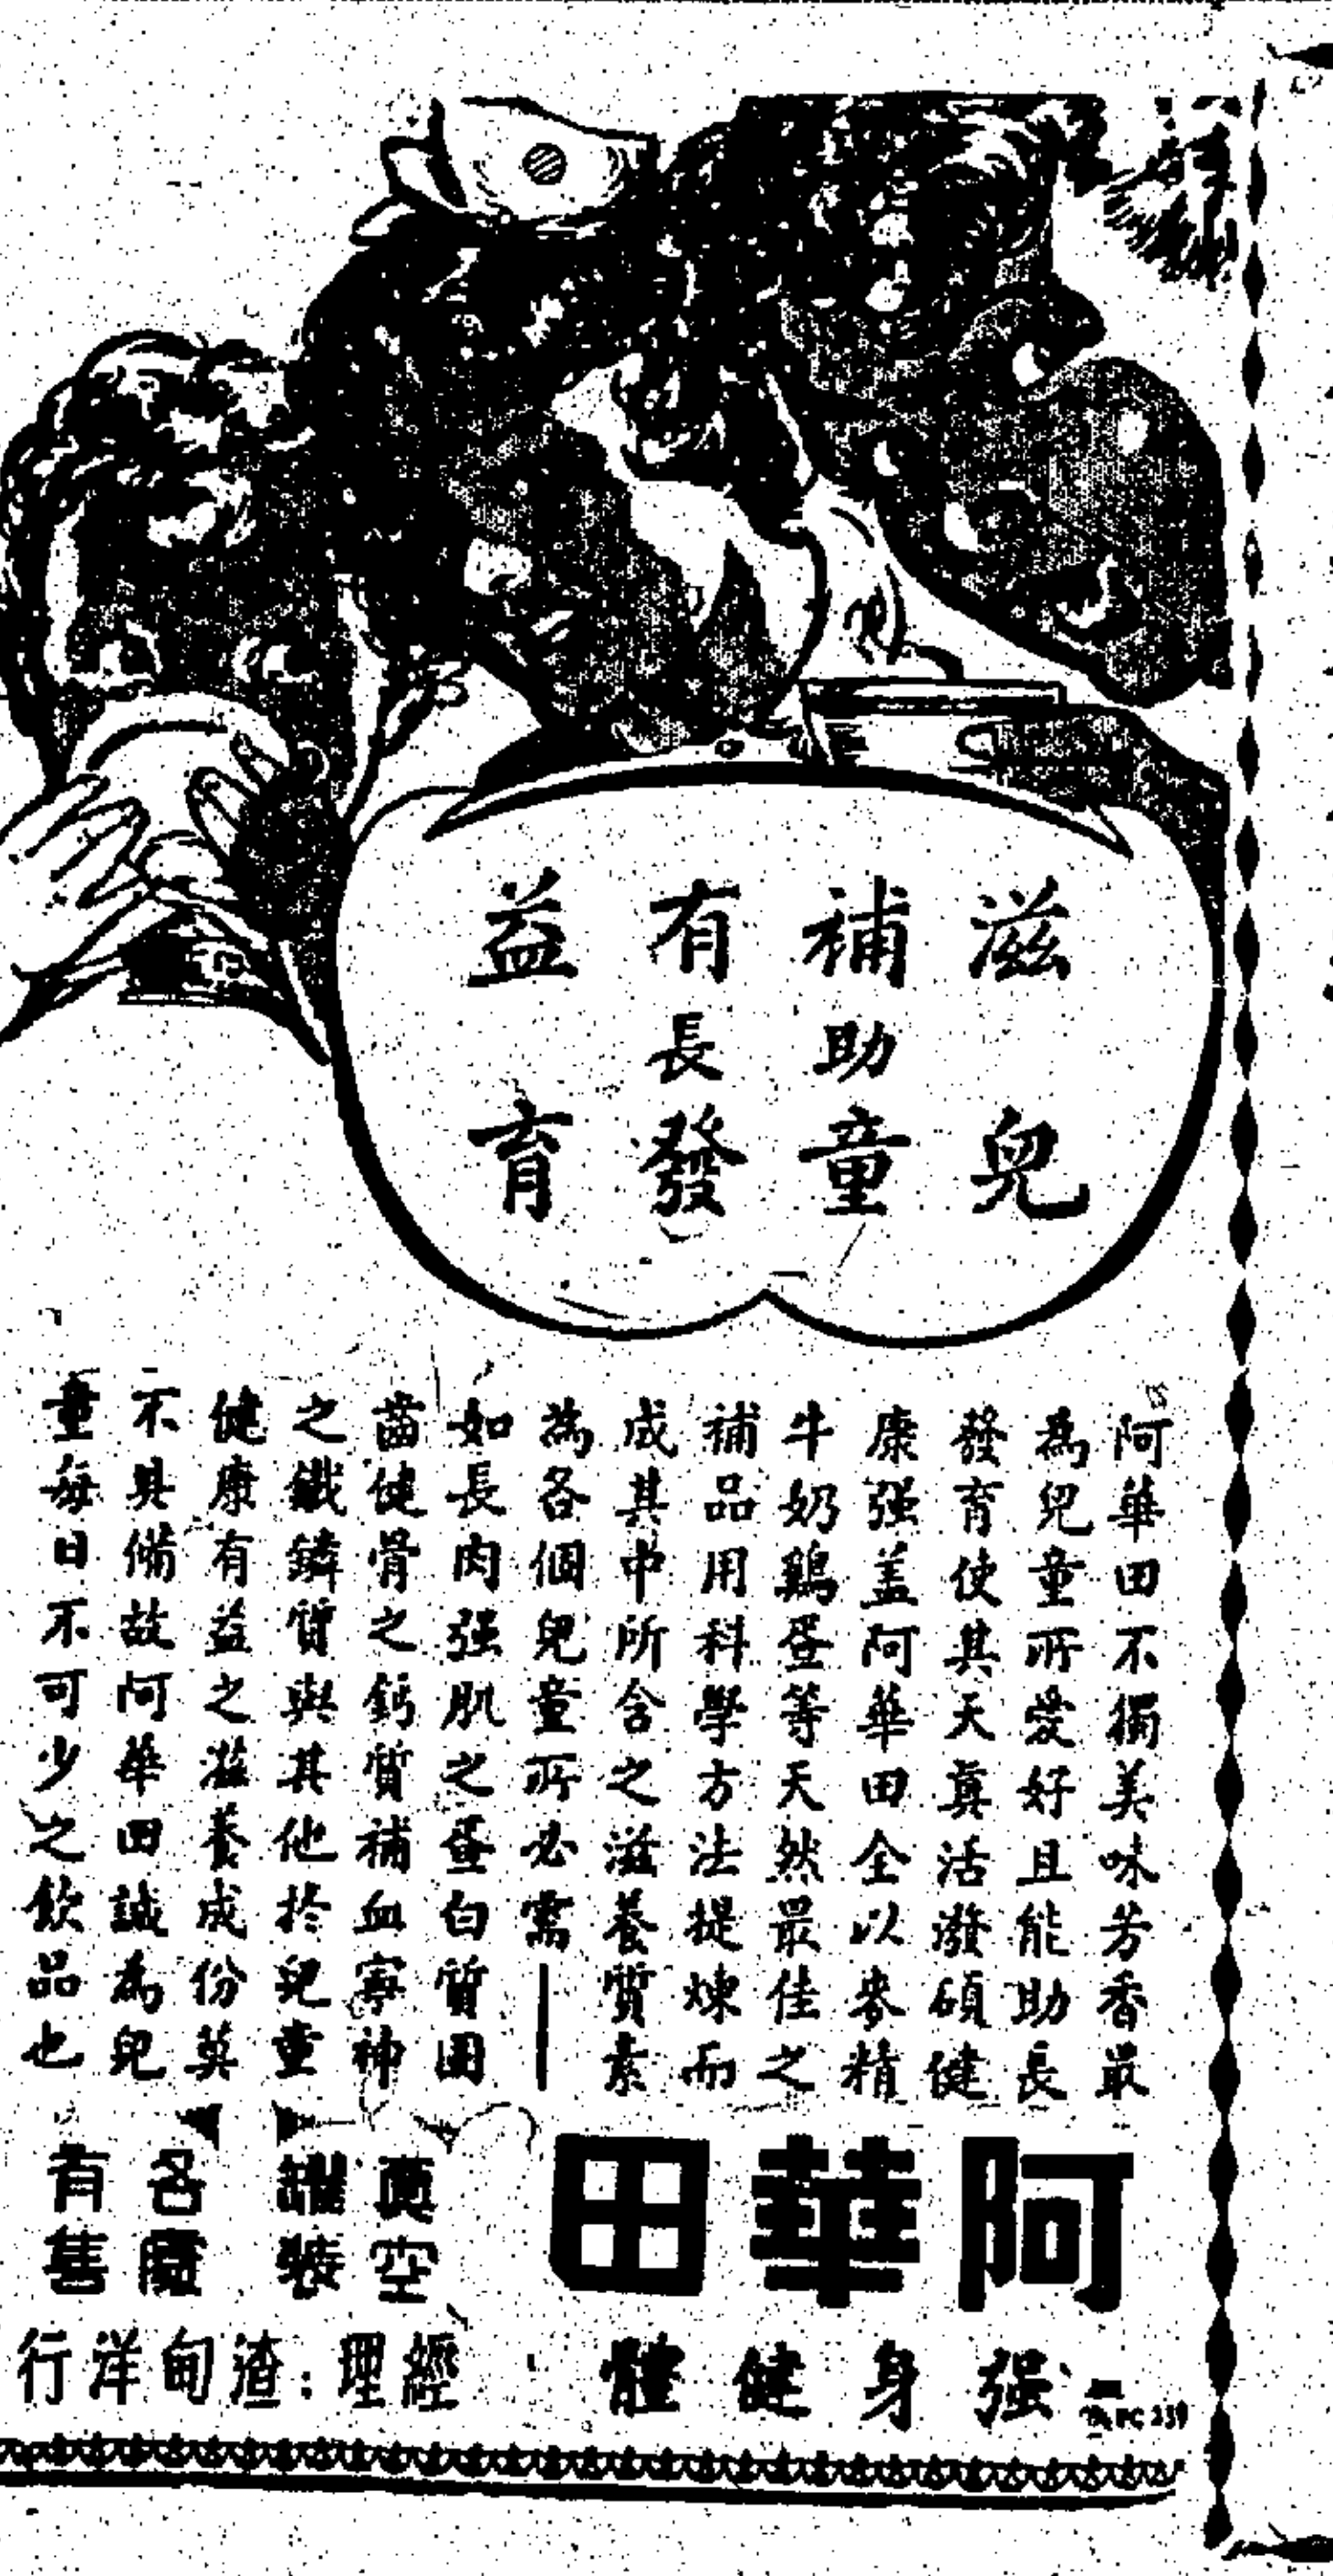 滋補有益
助長
兒童發育
阿華田不獨美味芳香最
為兒童所愛好且能助長
發育使其天真活潑碩健
康强盖阿華田全以麥精
牛奶鷄蛋等天然最佳之
補品用科學方法提煉而
成其中所含之滋養質素
為各個兒童所必需—
如長肉强肌之蛋白質固
齒健骨之鈣質補血寧神
之鐵鏻質與其他於兒童
健康有益之滋養成份莫
不具備故阿華田誠為兒
童每日不可少之飲品也
阿華田
强身健體
真空
罐裝
各處
有售
經理:渣甸洋行
PC 339